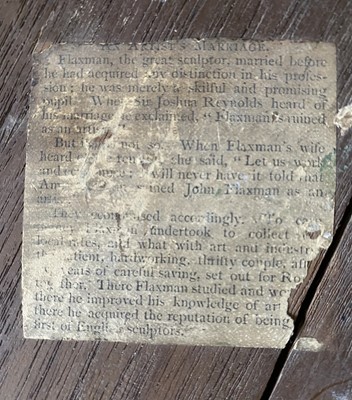 AN ARTIST'S MARRIAGE.
Flaxman, the great sculptor, married before
he had acquired any distinction in his profes-
sion; he was merely a skilful and promising
pupil. When Sir Joshua Reynolds heard of
his marriage he exclaimed, "Flaxman is ruined
as an artist
But not so. When Flaxman's wife
heard she said, "Let us work
and will never have it told that
John Flaxman as an
They accordingly.
undertook to collect
rates, and what with art and
patient, hardworking, thrifty couple,
years of careful saving, set out for
There Flaxman studied and
there he improved his knowledge of art
there he acquired the reputation of being
first of English sculptors.